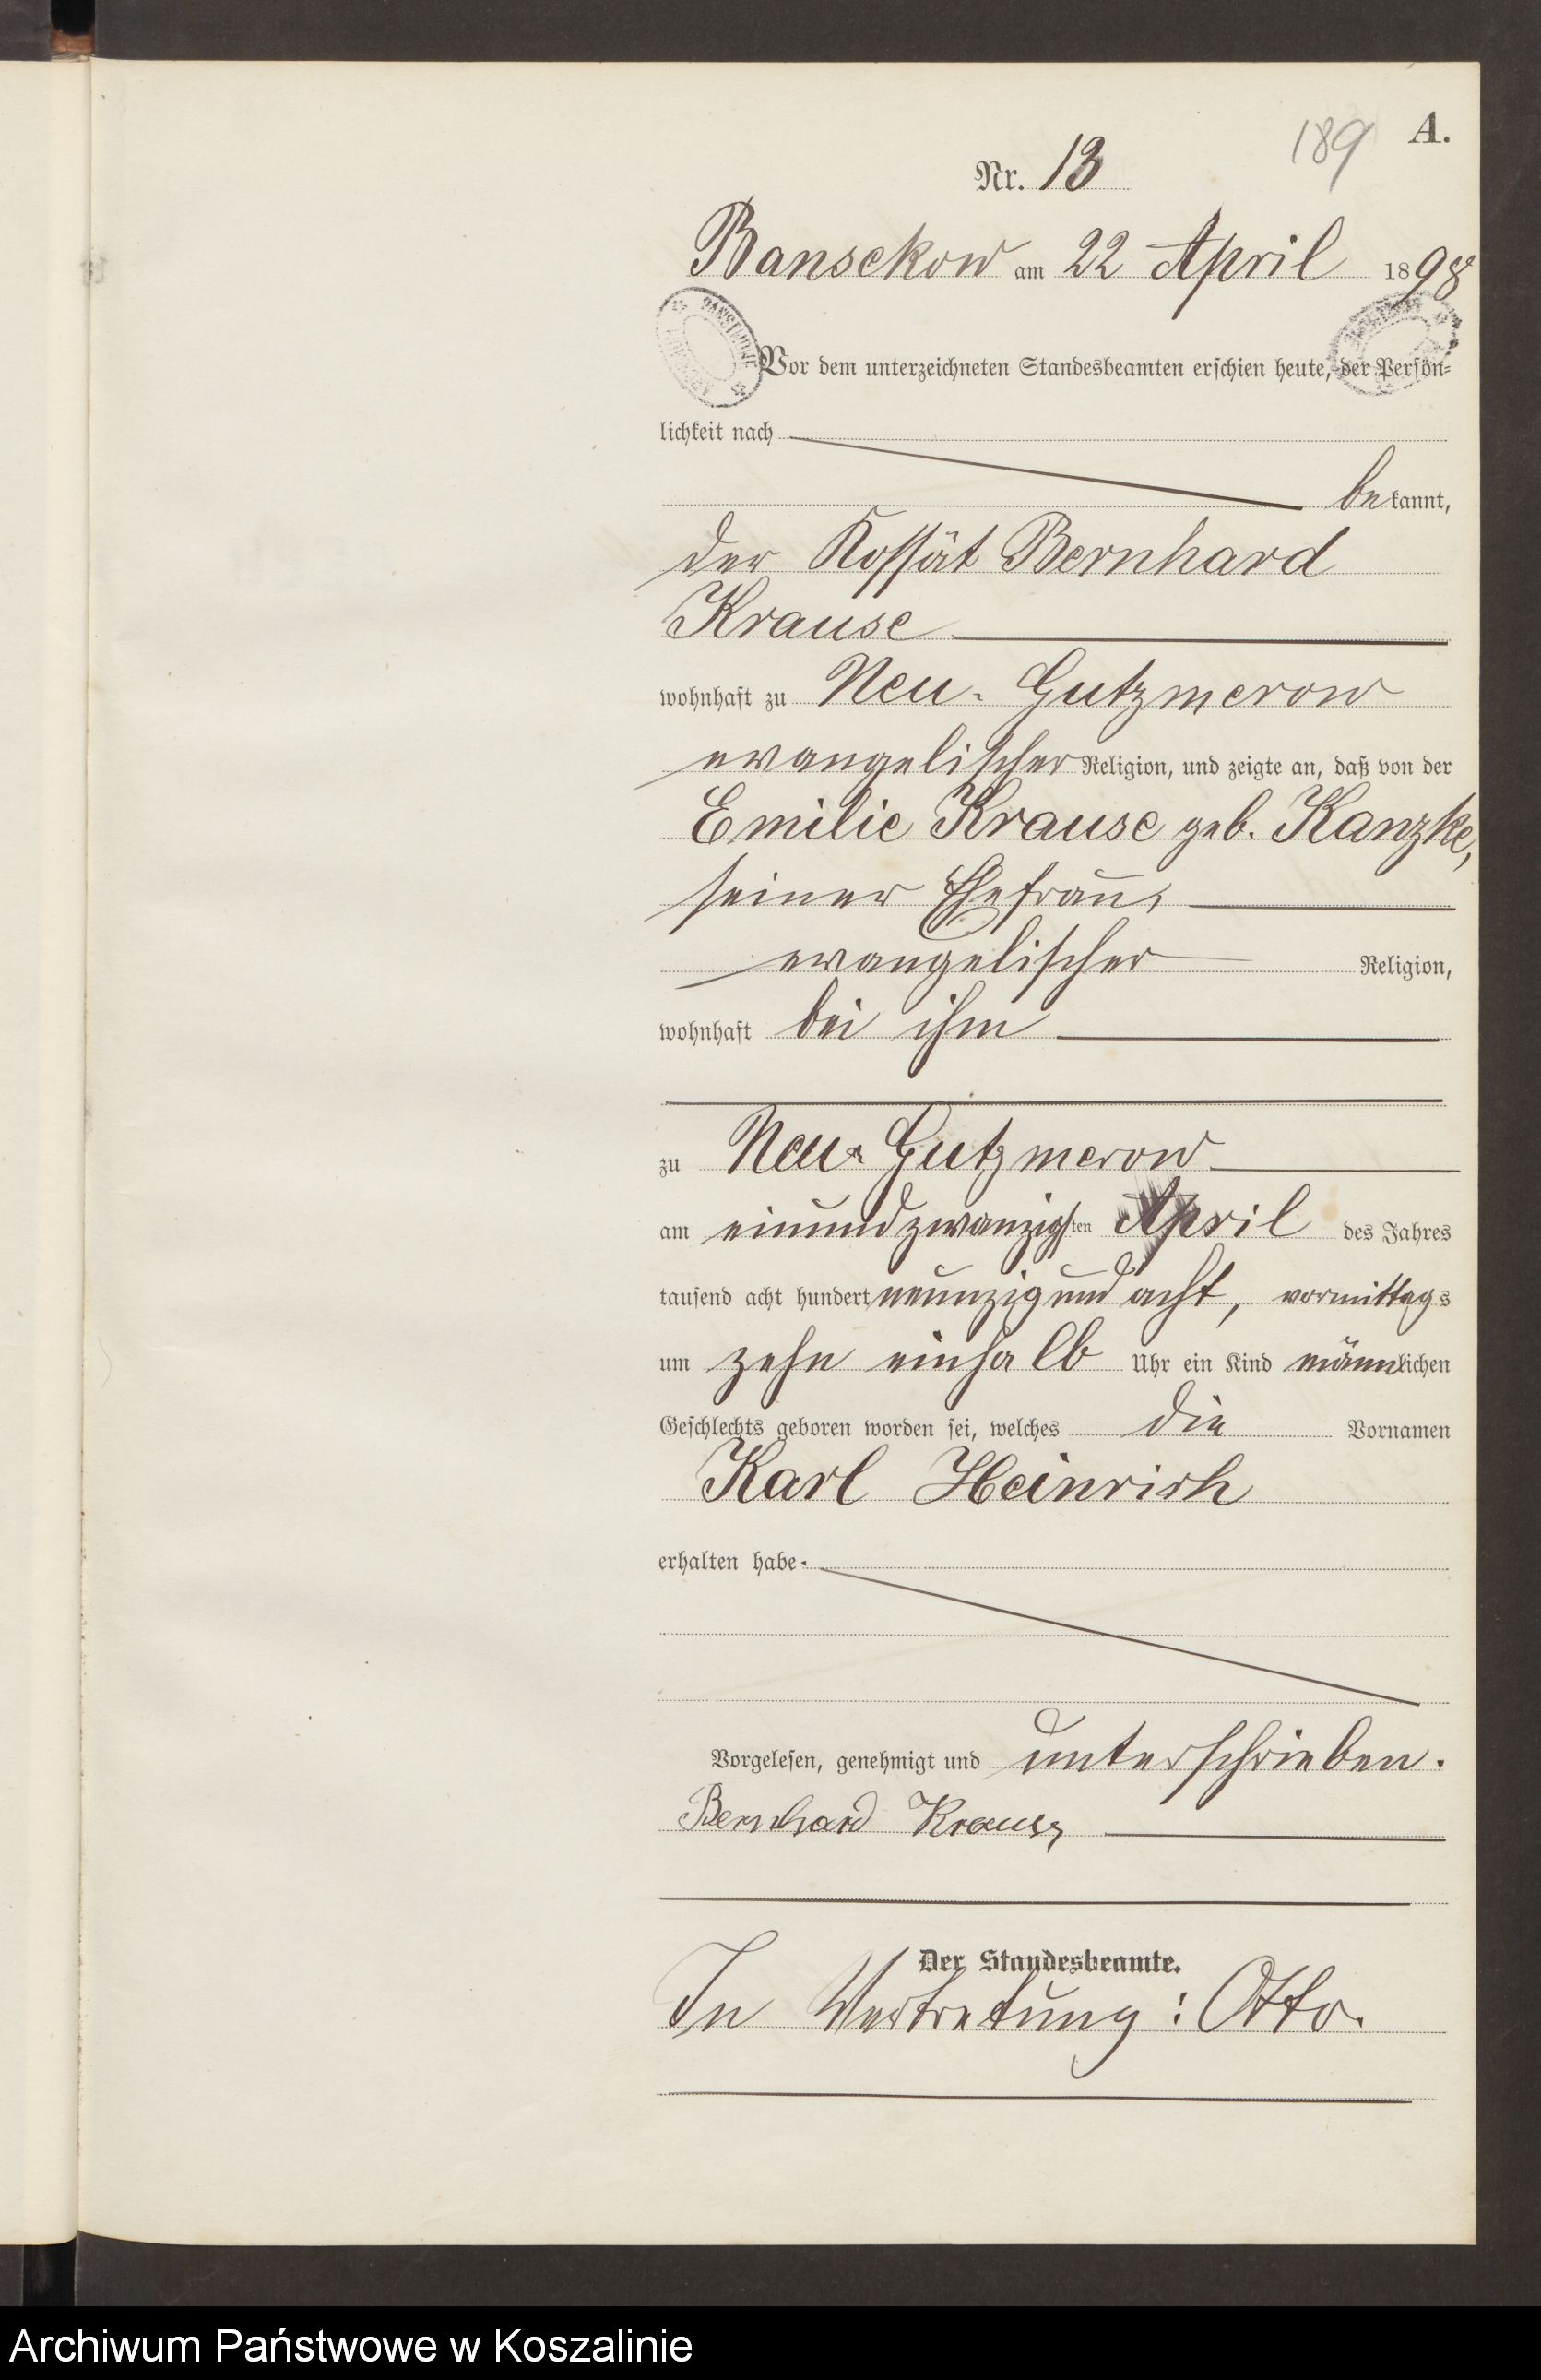 189 A.
Nr. 13
Bansekow am 22 April 1898
Vor dem unterzeichneten Standesbeamten erschien heute, der Persön-
lichkeit nach
bekannt,
der Kossät Bernhard
Krause
wohnhaft zu Neu-Gutzmerow
evangelischer Religion, und zeigte an, daß von der
Emilie Krause geb. Kanzke,
seiner Ehefrau,
evangelischer Religion,
wohnhaft bei ihm
zu Neu-Gutzmerow
am einundzwanzigsten April des Jahres
tausend acht hundert neunzig und acht, vormittags
um zehn einhalb Uhr ein Kind männlichen
Geschlechts geboren worden sei, welches die Vornamen
Karl Heinrich
erhalten habe.
Vorgelesen, genehmigt und unterschrieben.
Bernhard Krause
Der Standesbeamte.
In Vertretung: Otto.
Archiwum Państwowe w Koszalinie